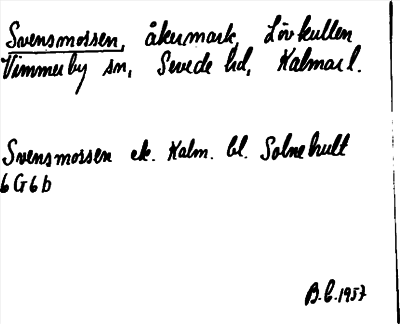 Svensmossen, åkermark, Lövkullen
Vimmerby sn, Sevede hd, Kalmar l.
Svensmossen ek. Kalm. bl. Solnehult
6G6b
B.C. 1957